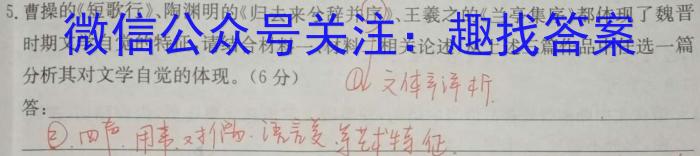 5.曹操的《短歌行》、陶渊明的《归去来兮辞并序》、王羲之的《兰亭集序》都体现了魏晋
微信公众号关注：趣找答案
时期文学自觉的特征，请结合材料 相关论述 任选一篇
分析其对文学自觉的体现。(6分)
① 文体 详析
答：
② 四声、用韦、对偶 语言美 等艺术特征